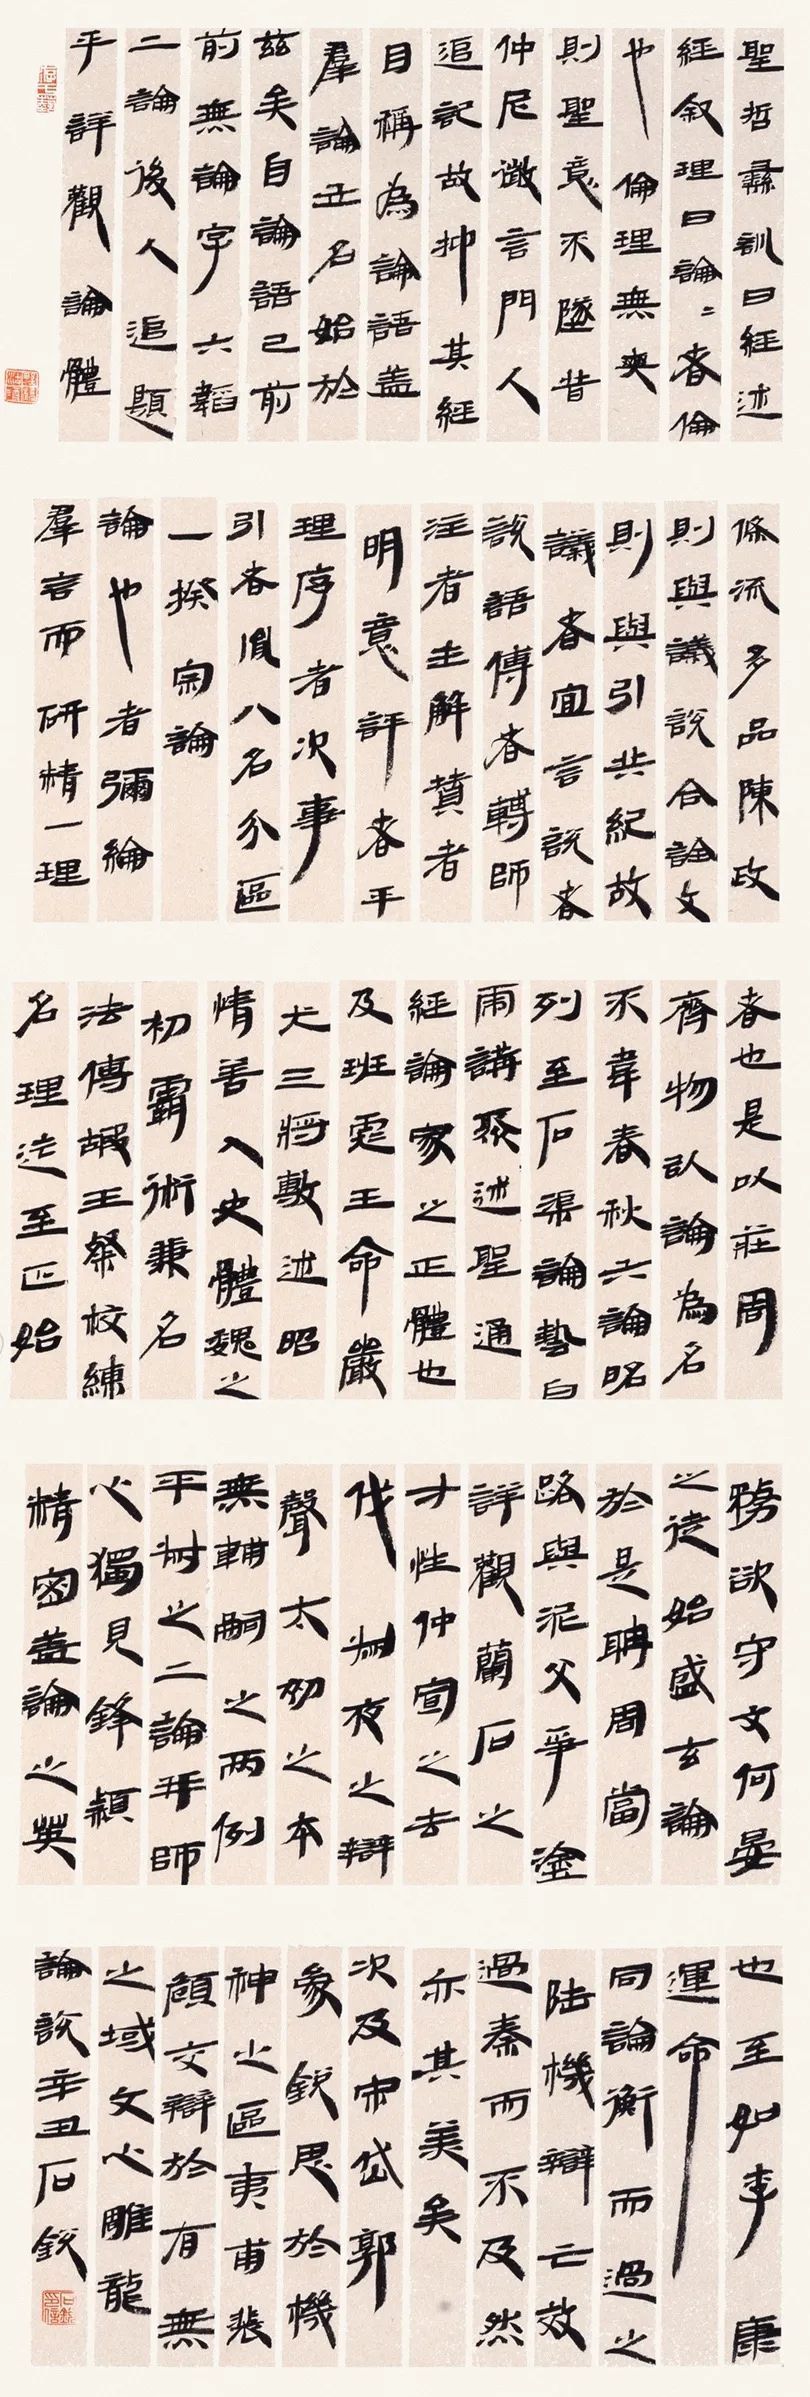 聖哲彝訓曰經述
經叙理曰論〻者倫
也倫理無爽
則聖意不墜昔
仲尼微言門人
追記故抑其經
目稱為論語蓋
羣論立名始於
茲矣自論語已前
前無論字六韜
二論後人追題
乎詳觀論體
條流多品陳政
則與議說合詮文
則與引共紀故
議者宜言說者
說語傳者轉師
注者主解贊者
明意評者平
理序者次事
引者胤八名分區
一揆宗論
論也者彌綸
羣言而研精一理
者也是以莊周
齊物以論為名
不韋春秋六論昭
列至石渠論藝白
雨講聚述聖通
經論家之正體也
及班彪王命嚴
尤三將敷述昭
情善入史體魏之
初霸術兼名
法傅嘏王粲校練
名理迄至正始
務欲守文何晏
之徒始盛玄論
於是聃周當
路與泥父爭塗
詳觀蘭石之
才性仲宣之去
伐叔夜之辯
聲太初之本
無輔嗣之兩例
平叔之二論并師
心獨見鋒穎
精密蓋論之英
也至如李康
運命
同論衡而過之
陸機辯亡效
過秦而不及然
亦其美矣
次及宋岱郭
象銳思於機
神之區夷甫裴
頠交辯於有無
之域文心雕龍
論說辛丑石銳